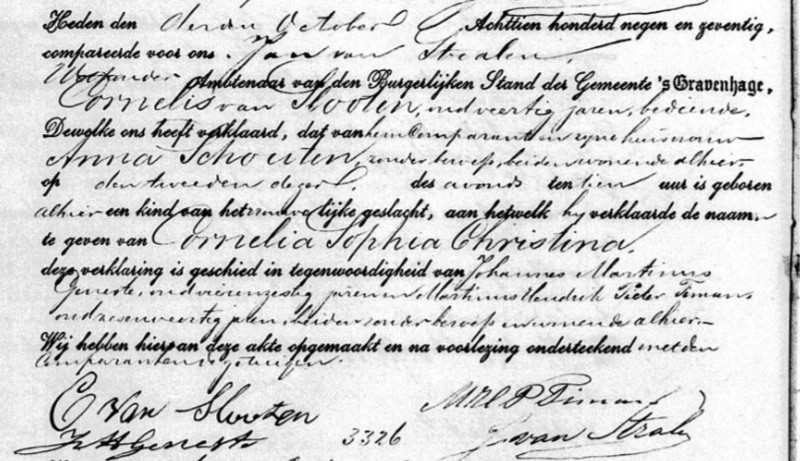 Heden den derden October Achttien honderd negen en zeventig,
compareerde voor ons Jan van Stralen,
Wethouder Ambtenaar van den Burgerlijken Stand der Gemeente 's Gravenhage,
Cornelis van Slooten, oud veertig jaren, bediende,
Dewelke ons heeft verklaard, dat van hem Comparant en zijne huisvrouw
Anna Schouten, zonder beroep, beiden wonende alhier
op den tweeden dezer des avonds ten tien uur is geboren
alhier een kind van het vrouwelijke geslacht, aan hetwelk hij verklaarde de namen
te geven van Cornelia Sophia Christina.
deze verklaring is geschied in tegenwoordigheid van Johannes Martinus
Geneste, oud vierenzestig jaren en Martinus Hendrik Pieter Timans
oud zesenveertig jaren, beiden zonder beroep en wonende alhier
Wij hebben hiervan deze akte opgemaakt en na voorlezing onderteekend met den
Comparant en de getuigen.
C van Slooten M H P Timans
Geneste 3326 J van Stralen